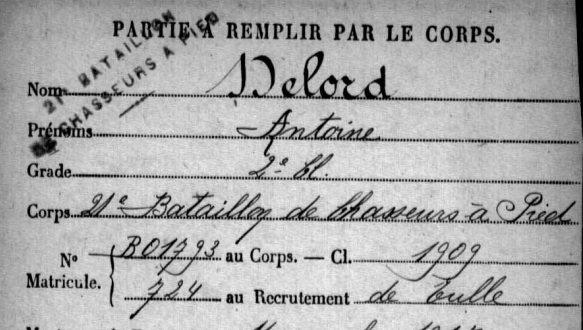 PARTIE A REMPLIR PAR LE CORPS.
21e BATAILLON
DE CHASSEURS A PIED
Nom Delord
Prénoms Antoine
Grade 2e Cl.
Corps 21e Bataillon de Chasseurs à Pied
No Matricule. R01793 au Corps. — Cl. 1909
724 au Recrutement de Tulle